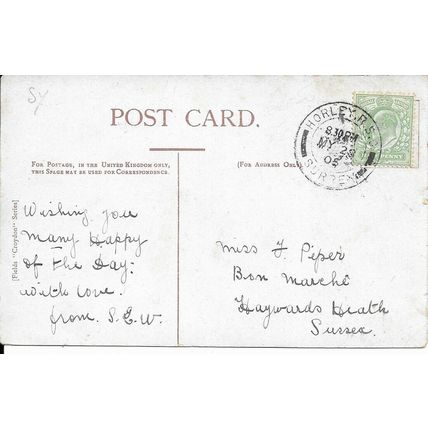 POST CARD.
FOR POSTAGE, IN THE UNITED KINGDOM ONLY,
THIS SPACE MAY BE USED FOR CORRESPONDENCE.
(FOR ADDRESS ONLY.)
HORLEY. R.S.O.
8.30PM
MY 2
05
SURREY
PENNY
[Fields "Croydon" Series]
Wishing you
many Happy
of the Day:
with love.
from. S.E.W.
Miss F. Piper
Bon Marchê
Haywards Heath
Sussex.